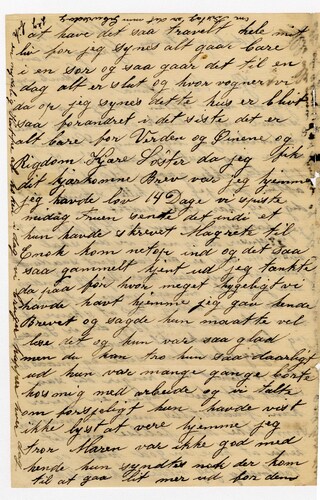 at have det saa travelt hele mit
liv for jeg synes alt gaar bare
i en sør og saa gaar det til en
dag alt er slut og hvor vogner vi
da op jeg synes dette hus er blivt
saa forandret i det siste det er
alt bare for Verden og Øinene og
Rigdom Kare Søster da jeg fik
dit kjarkomne Brev var jeg hjemme
jeg havde lov 14 Dage vi spiste
midag Fruen sendte det inde et
hun havde skrevet Magrete til
Enok kom netop ind og det saa
saa gammelt kjent ud jeg tankte
da paa for hvor meget hygeligt vi
havde havt hjemme jeg gav hende
Brevet og sagde hun maatte vel
lese det og hun var saa glad
men du kan tro hun saa daarligt
ud hun var mange gange borte
hos mig med arbeide og vi talte
om forsjeligt hun havde vist
ikke lyst at vere hjemme jeg
tror Maren var ikke god med
hende hun syndtes nok der kom
til at gaa lit mer ud for dem